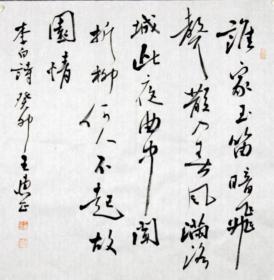 誰家玉笛暗飛
聲散入春風滿洛
城此夜曲中聞
折柳何人不起故
園情
李白詩癸卯王